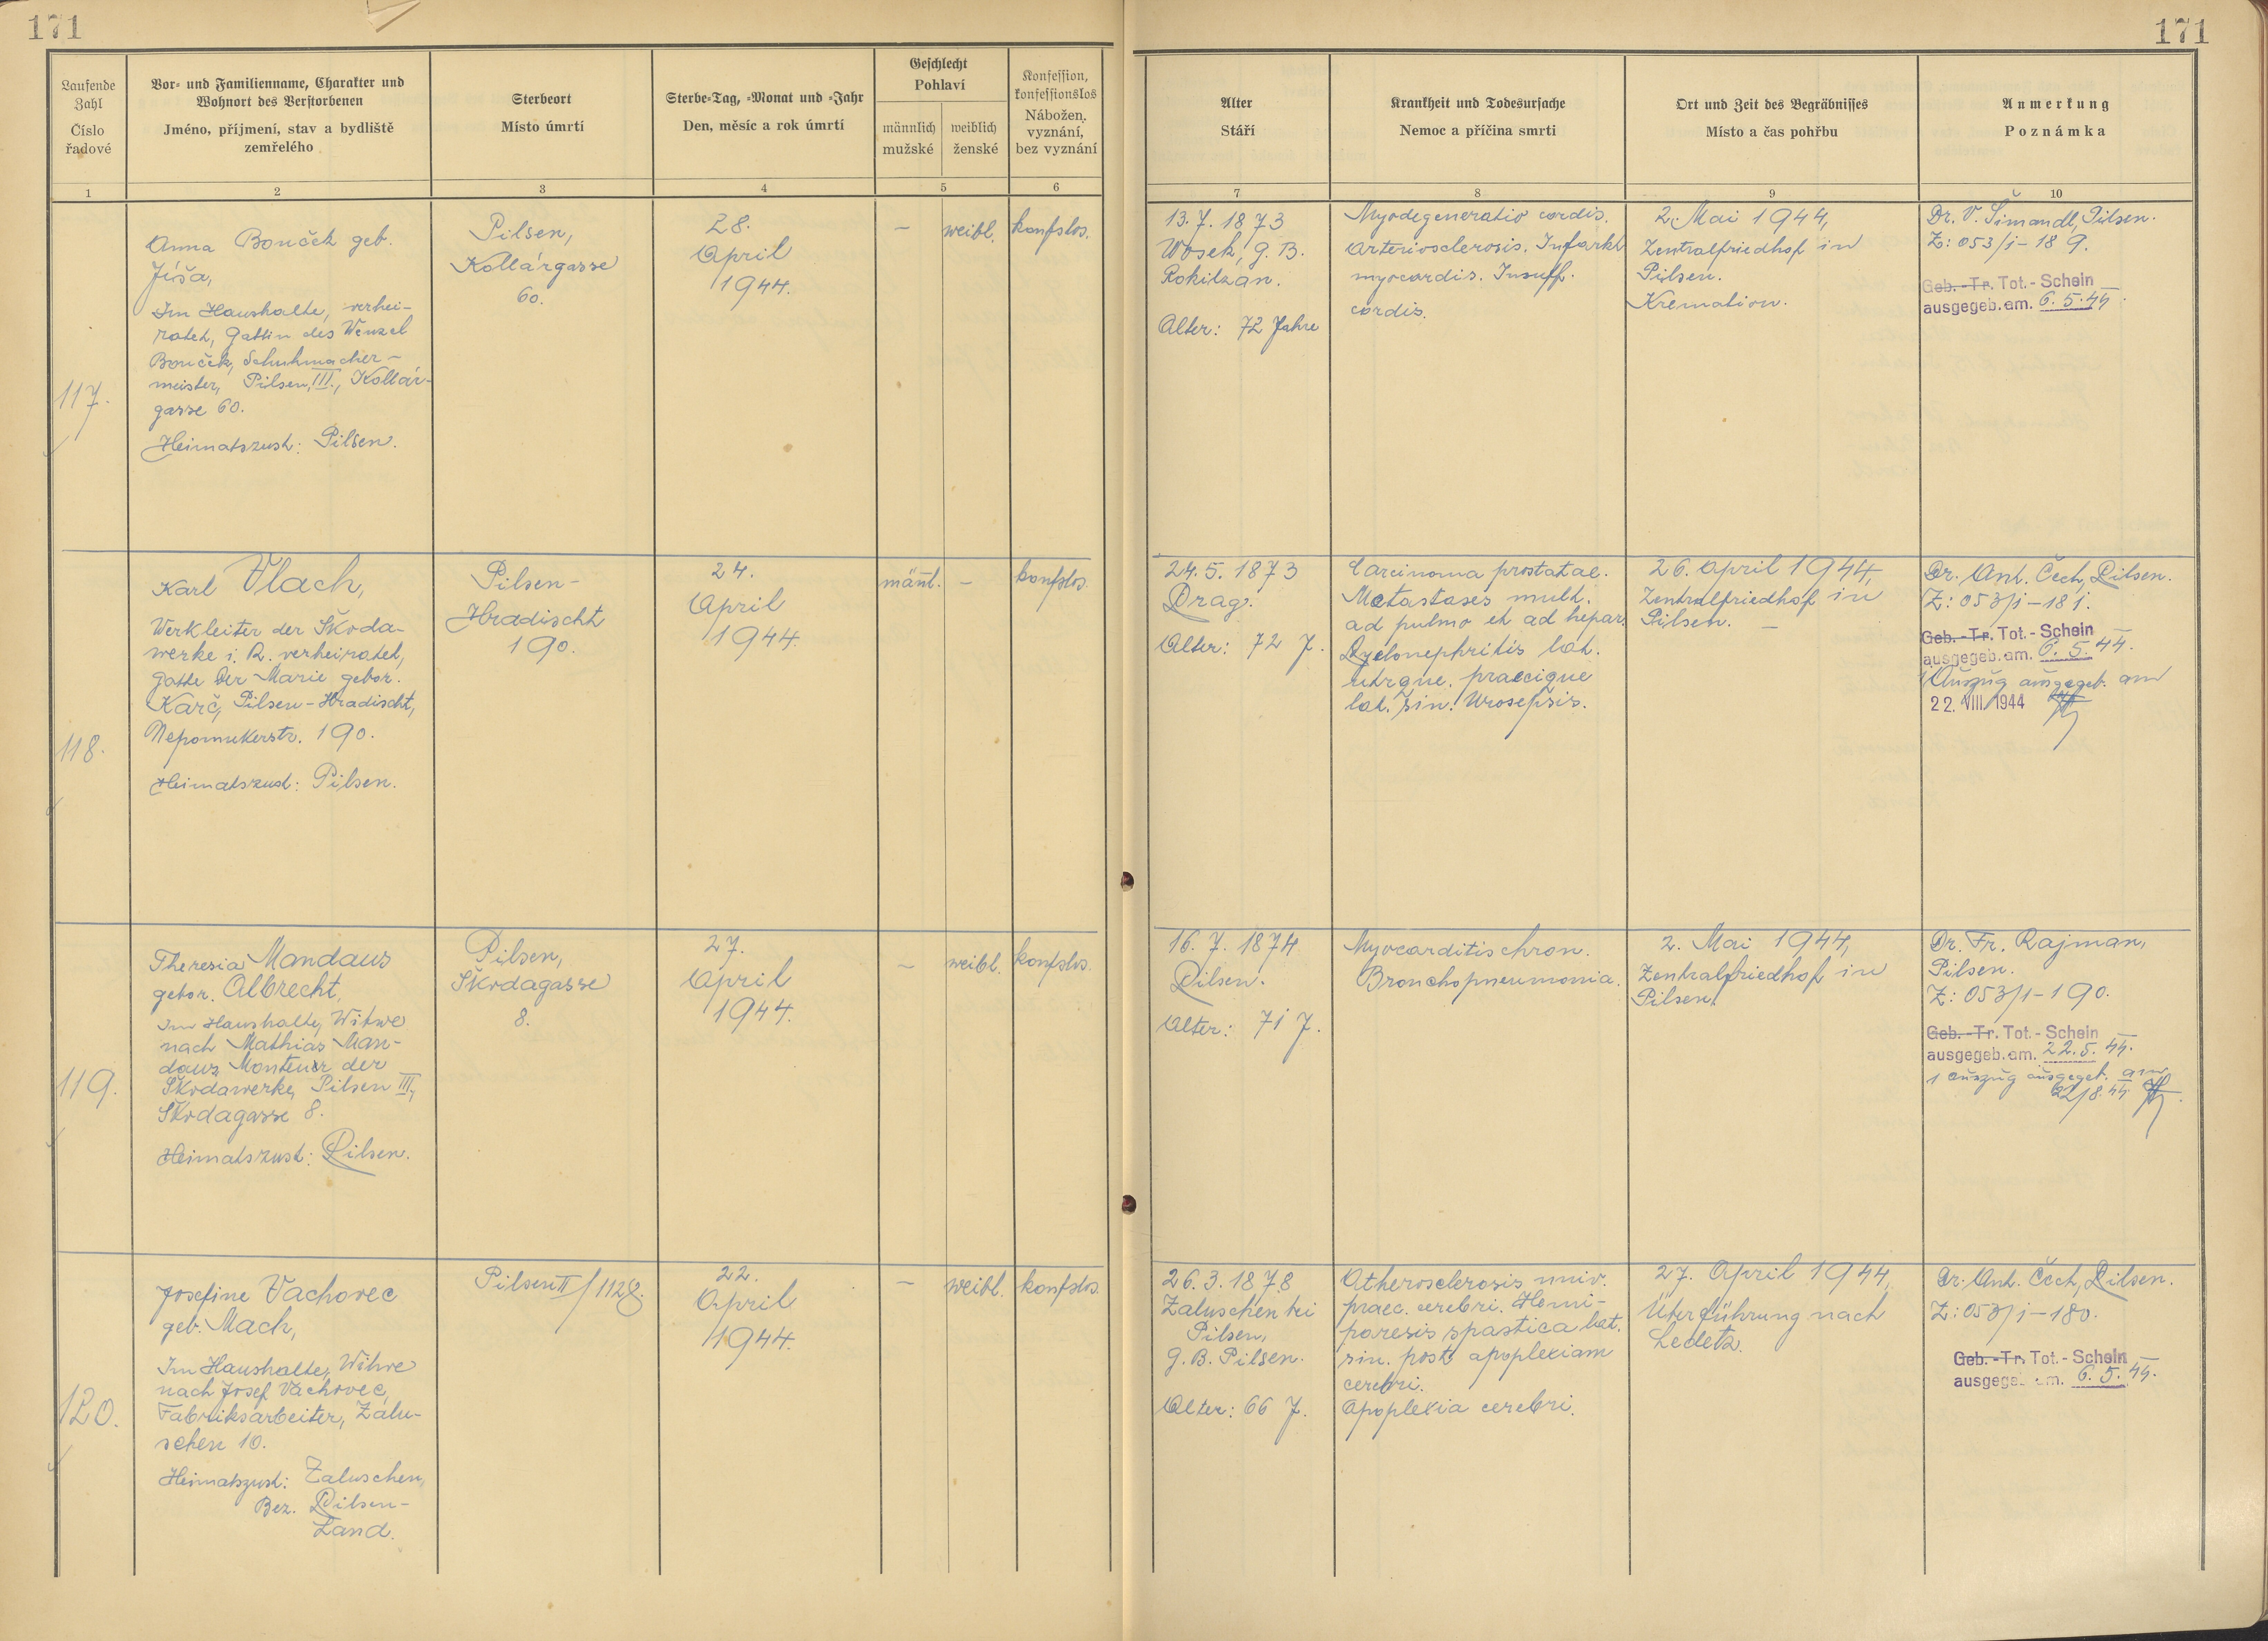 171
171
Laufende Zahl
Číslo řadové
Vor- und Familienname, Charakter und
Wohnort des Verstorbenen
Jméno, příjmení, stav a bydliště
zemřelého
Sterbeort
Místo úmrtí
Sterbe-Tag, -Monat und -Jahr
Den, měsíc a rok úmrtí
Geschlecht
Pohlaví
männlich
mužské
weiblich
ženské
Konfession,
konfessionslos
Nábožen.
vyznání,
bez vyznání
Alter
Stáří
Krankheit und Todesursache
Nemoc a příčina smrti
Ort und Zeit des Begräbnisses
Místo a čas pohřbu
Anmerkung
Poznámka
1
2
3
4
5
6
7
8
9
10
117.
Anna Bouček geb.
Jíša,
Im Haushalte, verhei-
ratet, Gattin des Wenzel
Bouček, Schuhmacher-
meister, Pilsen, III., Kollár-
gasse 60.
Heimatszust: Pilsen.
Pilsen,
Kollárgasse
60.
28.
April
1944.
–
weibl.
konfslos.
13.7.1873
Wosek, G.B.
Rokitzan.
Alter: 72 Jahre
Myodegeneratio cordis.
Arteriosclerosis. Infarkt
myocardis. Insuff.
cordis.
2. Mai 1944,
Zentralfriedhof in
Pilsen.
Kremation.
Dr. V. Šimandl, Pilsen.
Z: 053/1-189.
Geb.-Tr. Tot.-Schein
ausgegeb. am. 6.5.44.
118.
Karl Vlach,
Werkleiter der Škoda-
werke i. R. verheiratet,
Gatte der Marie gebor.
Karč, Pilsen-Hradischt,
Nepomukerstr. 190.
Heimatszust: Pilsen.
Pilsen-
Hradischt
190.
24.
April
1944.
männl.
–
konfslos.
24.5.1873
Prag.
Alter: 72 J.
Carcinoma prostatae.
Metastases mult.
ad pulmo et ad hepar.
Pyelonephritis lat.
utrque. praecique
lat. sin. Urosepsis.
26. April 1944,
Zentralfriedhof in
Pilsen. –
Dr. Ant. Čech, Pilsen.
Z: 053/1-181.
Geb.-Tr. Tot.-Schein
ausgegeb. am. 6.5.44.
1 Auszug ausgegeb. am
22. VIII. 1944
119.
Theresia Mandaus
gebor. Albrecht,
Im Haushalte, Witwe
nach Mathias Man-
daus, Monteur der
Škodawerke, Pilsen III.,
Škodagasse 8.
Heimatszust: Pilsen.
Pilsen,
Škodagasse
8.
27.
April
1944.
–
weibl.
konfslos.
16.7.1874
Pilsen.
Alter: 71 J.
Myocarditis chron.
Bronchopneumonia.
2. Mai 1944,
Zentralfriedhof in
Pilsen.
Dr. Fr. Rajman,
Pilsen.
Z: 053/1-190.
Geb.-Tr. Tot.-Schein
ausgegeb. am. 22.5.44.
1 Auszug ausgegeb. am
22/8.44
120.
Josefine Vachovec
geb. Mach,
Im Haushalte, Witwe
nach Josef Vachovec,
Fabriksarbeiter, Zalu-
schen 10.
Heimatszust: Zaluschen,
Bez. Pilsen-
Land.
Pilsen II/1128.
22.
April
1944.
–
weibl.
konfslos.
26.3.1878
Zaluschen bei
Pilsen,
G.B. Pilsen.
Alter: 66 J.
Atherosclerosis univ.
praec. cerebri. Hemi-
paresis spastica lat.
sin. post apoplexiam
cerebri.
Apoplexia cerebri.
27. April 1944,
Überführung nach
Ledetz.
Dr. Ant. Čech, Pilsen.
Z: 053/1-180.
Geb.-Tr. Tot.-Schein
ausgege. am. 6.5.44.